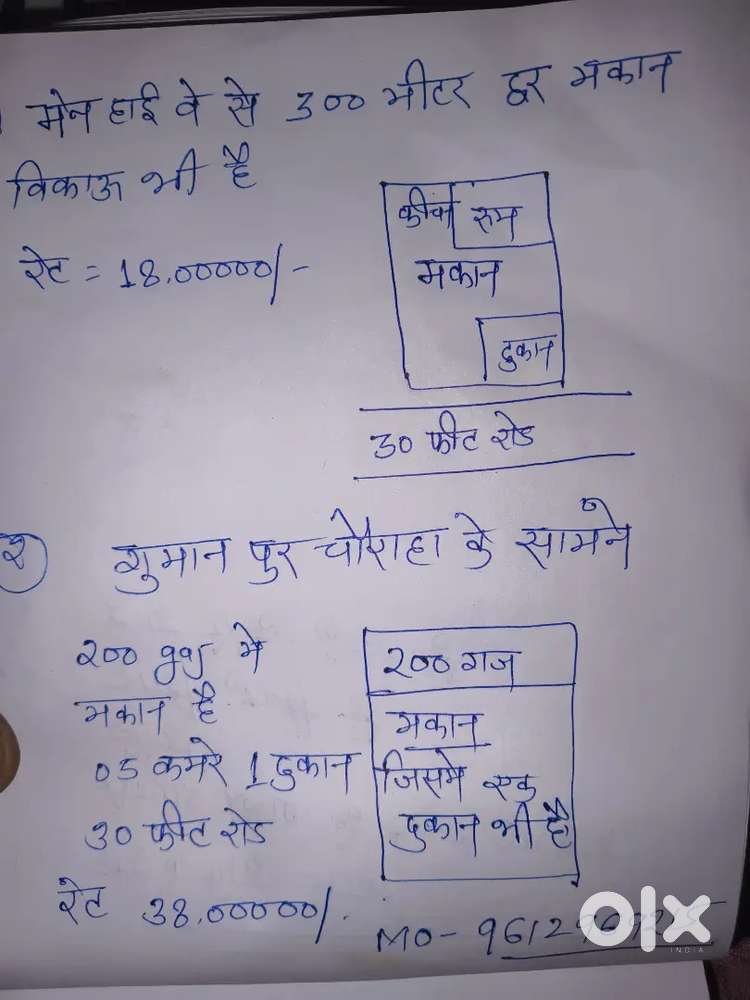 मेन हाई वे से 300 मीटर दूर मकान
विकाऊ भी है
रेट = 18,00000/-
कीचन रूम
मकान
दुकान
30 फीट रोड
२ गुमान पुर चौराहा के सामने
२०० gaj मे
मकान है
05 कमरे 1 दुकान
30 फीट रोड
रेट 38,00000/.
२०० गज
मकान
जिसमे एक
दुकान भी है
MO-
olx
INDIA